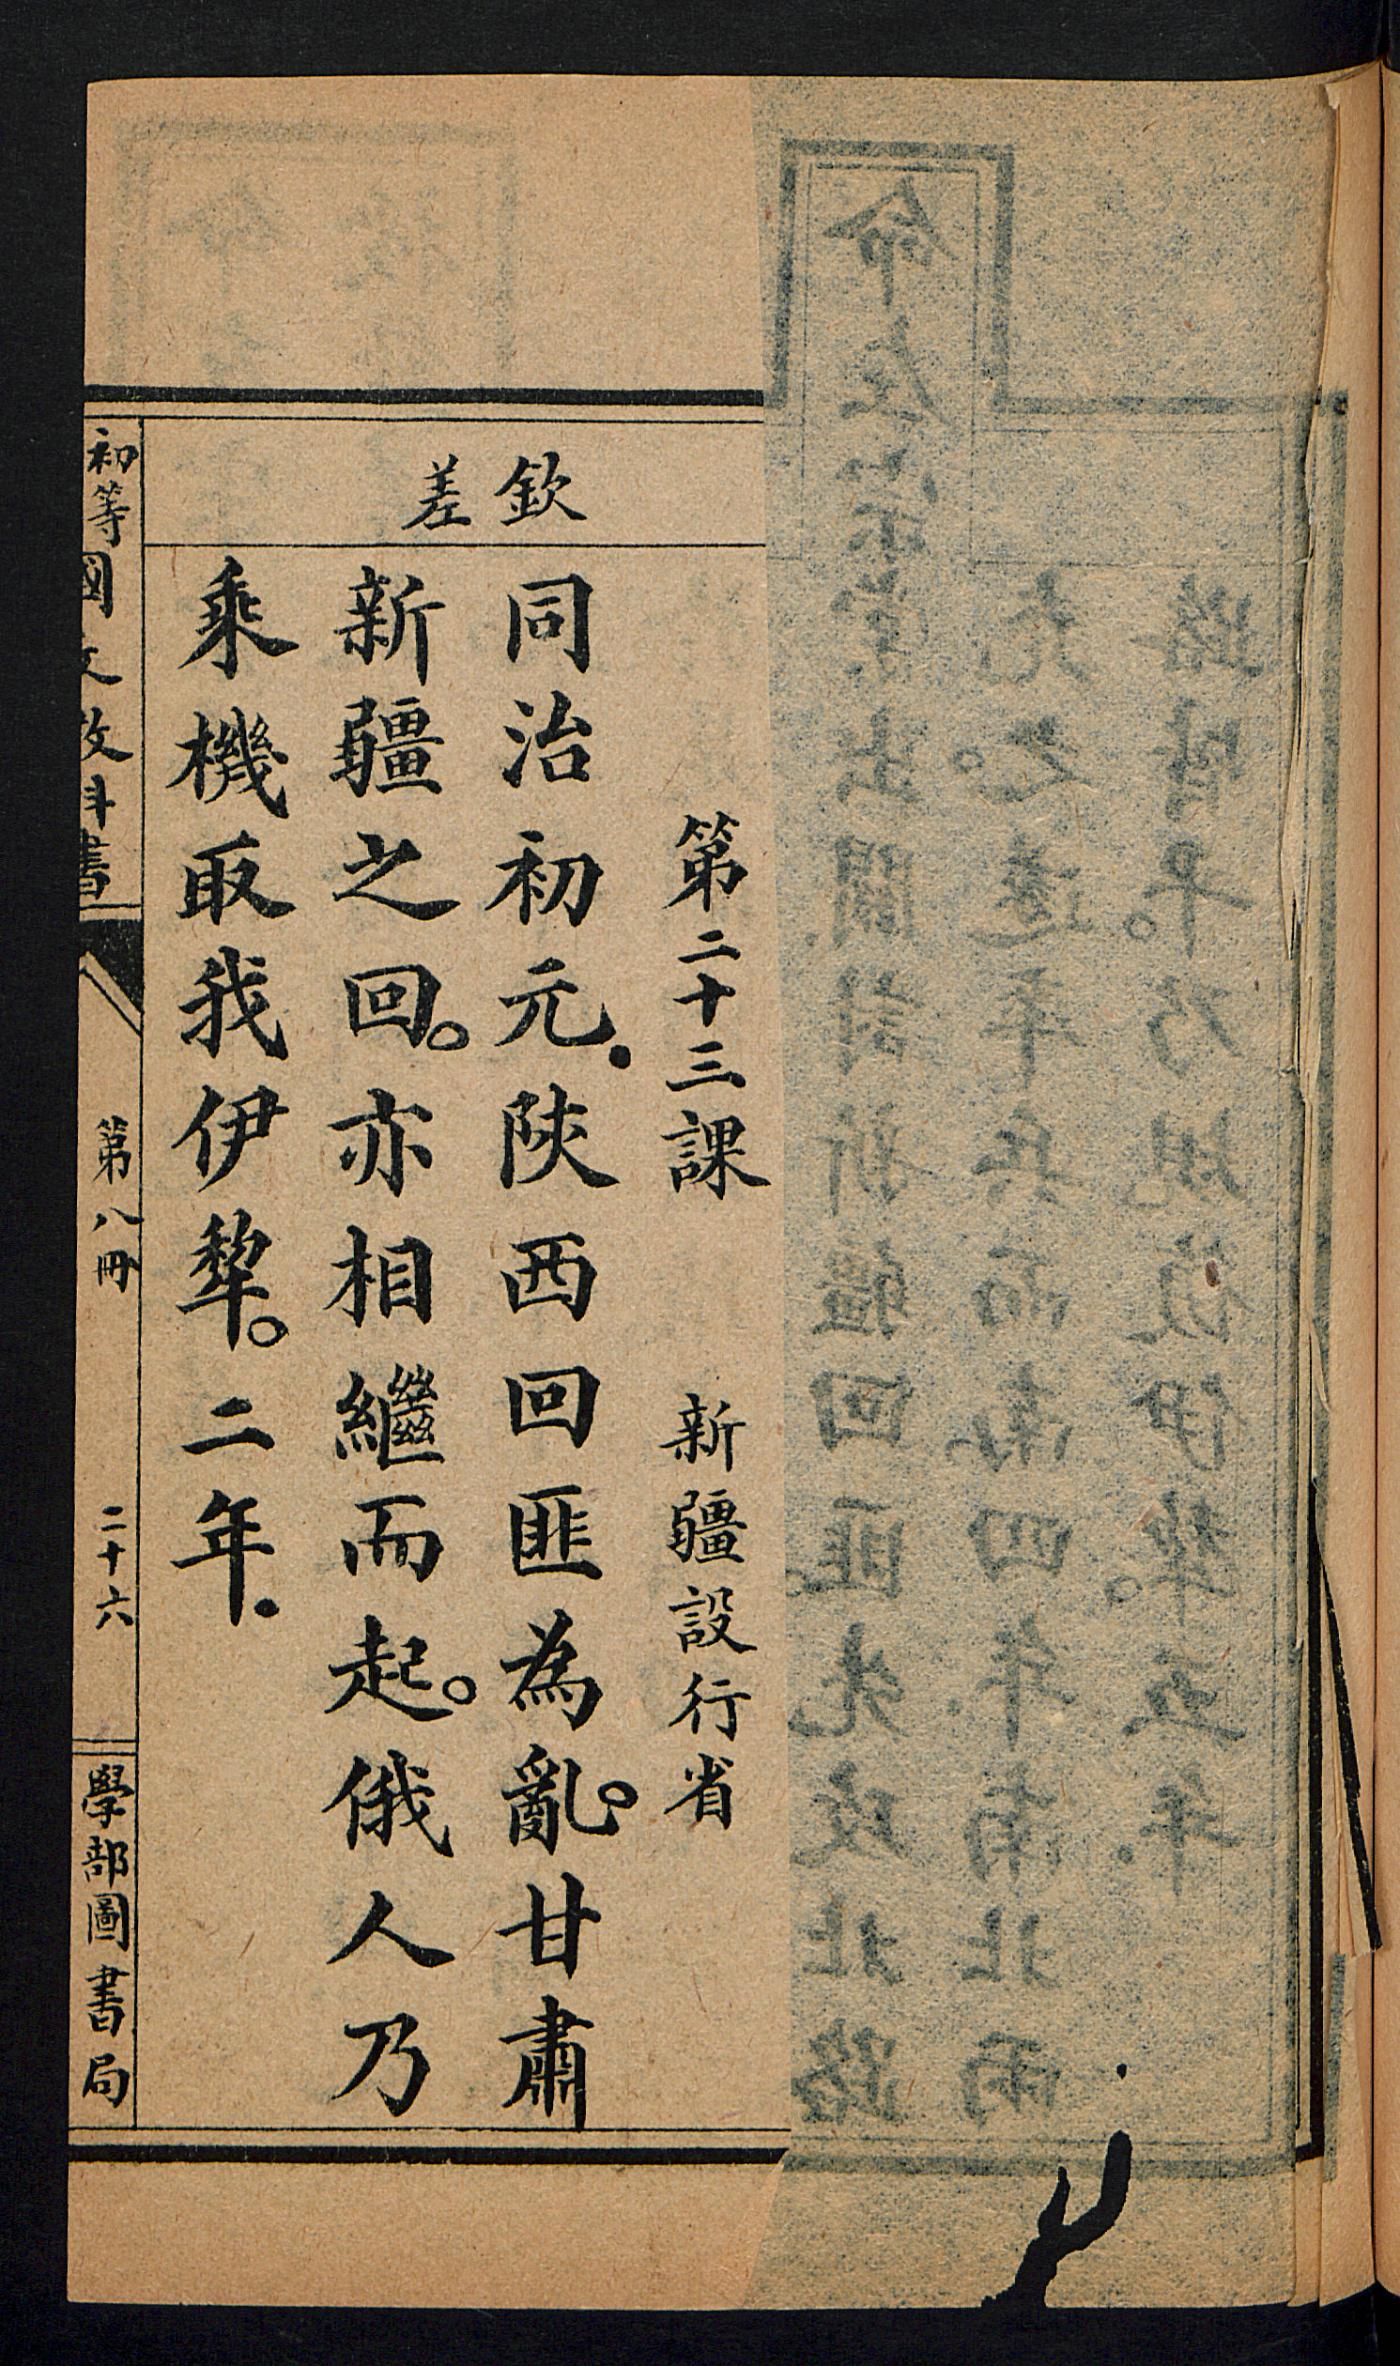 第二十三課 新疆設行省
欽
差
同治初元.陝西回匪為亂。甘肅
新疆之回。亦相繼而起。俄人乃
乘機取我伊犂。二年.
初等國文教科書 第八冊 二十六 學部圖書局